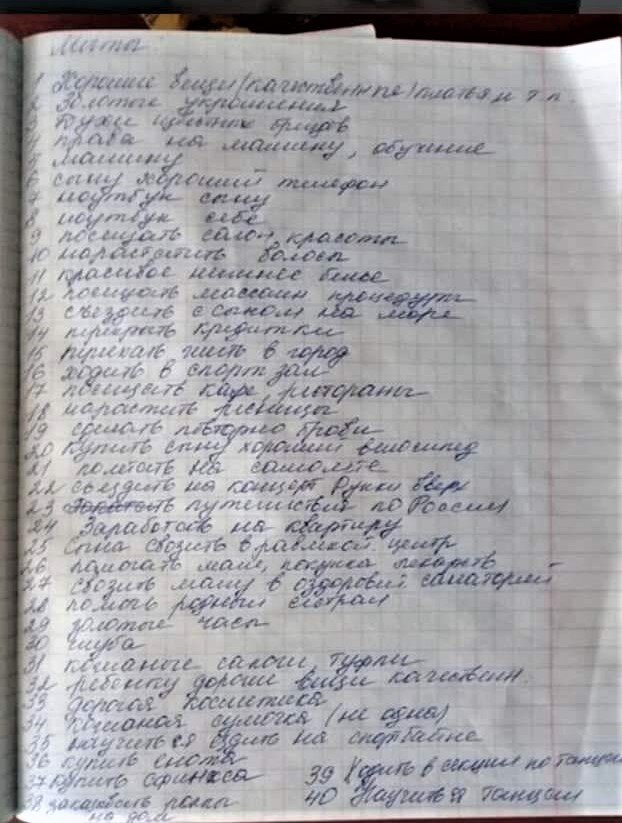 Мечты:
1 Хорошие вещи (качественные) платья и т.п.
2 Золотые украшения
3 Духи известных брендов
4 права на машину, обучение
5 машину
6 сыну хороший телефон
7 ноутбук сыну
8 ноутбук себе
9 посещать салон красоты
10 нарастить волосы
11 красивое нижнее белье
12 посещать массаж процедуры
13 съездить с сыном на море
14 перекрыть кредитки
15 переехать жить в город
16 ходить в спорт зал
17 посещать кафе, рестораны
18 нарастить ресницы
19 сделать повторно брови
20 купить сыну хороший велосипед
21 полетать на самолете
22 съездить на концерт Руки вверх
23 путешествия по России
24 Заработать на квартиру
25 сына свозить в развлкой центр
26 помогать маме, покупка лекарств
27 свозить маму в оздоровит санаторий
28 помочь родным сестрам
29 золотые часы
30 шуба
31 кожаные сапоги, туфли
32 ребенку дороги вещи качественн.
33 дорогая косметика
34 Кожаная сумочка (не одна)
35 научиться ездить на спортбайке
36 купить
37 купить сфинкса
38 заказывать роллы
на дом
39 Ходить в секции по танцам
40 Научиться танцам